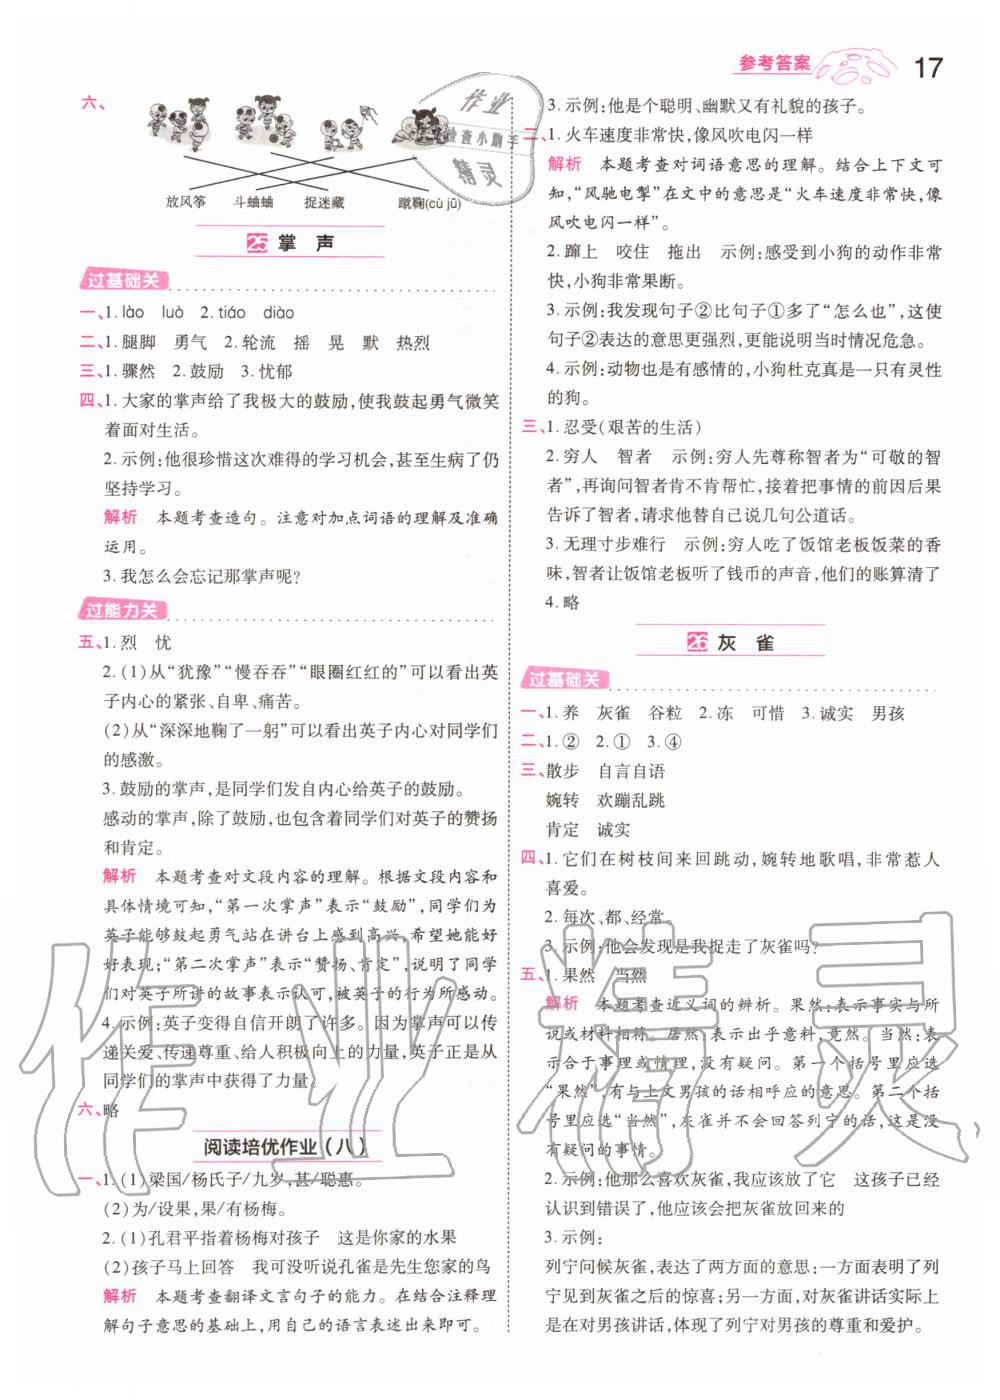 参考答案
17
六、
放风筝 斗蛐蛐 捉迷藏 蹴鞠(cù jū)
25 掌 声
过基础关
一、1. lào luò 2. tiáo diào
二、1. 腿脚 勇气 2. 轮流 摇 晃 默 热烈
三、1. 骤然 2. 鼓励 3. 忧郁
四、1. 大家的掌声给了我极大的鼓励,使我鼓起勇气微笑
着面对生活。
2. 示例:他很珍惜这次难得的学习机会,甚至生病了仍
坚持学习。
解析 本题考查造句。注意对加点词语的理解及准确
运用。
3. 我怎么会忘记那掌声呢?
过能力关
五、1. 烈 忧
2. (1)从“犹豫”“慢吞吞”“眼圈红红的”可以看出英
子内心的紧张、自卑、痛苦。
(2)从“深深地鞠了一躬”可以看出英子内心对同学们
的感激。
3. 鼓励的掌声,是同学们发自内心给英子的鼓励。
感动的掌声,除了鼓励,也包含着同学们对英子的赞扬
和肯定。
解析 本题考查对文段内容的理解。根据文段内容和
具体情境可知,“第一次掌声”表示“鼓励”,同学们为
英子能够鼓起勇气站在讲台上感到高兴,希望她能好
好表现;“第二次掌声”表示“赞扬、肯定”,说明了同学
们对英子所讲的故事表示认可,被英子的经历所感动。
4. 示例:英子变得自信开朗了许多。因为掌声可以传
递关爱、传递尊重、给人积极向上的力量,英子正是从
同学们的掌声中获得了力量。
六、略
阅读培优作业(八)
一、1. (1)梁国/杨氏子/九岁,甚/聪惠。
(2)为/设果,果/有杨梅。
2. (1)孔君平指着杨梅对孩子 这是你家的水果
(2)孩子马上回答 我可没听说孔雀是先生您家的鸟
解析 本题考查翻译文言句子的能力。在结合注释理
解句子意思的基础上,用自己的语言描述出来即可。
3. 示例:他是个聪明、幽默又有礼貌的孩子。
二、1. 火车速度非常快,像风吹电闪一样
解析 本题考查对词语意思的理解。结合上下文可
知,“风驰电掣”在文中的意思是“火车速度非常快,像
风吹电闪一样”。
2. 蹿上 咬住 拖出 示例:感受到小狗的动作非常
快,小狗非常果断。
3. 示例:我发现句子②比句子①多了“怎么也”,这使
句子②表达的意思更强烈,更能说明当时情况危急。
4. 示例:动物也是有感情的,小狗杜克真是一只有灵性
的狗。
三、1. 忍受(艰苦的生活)
2. 穷人 智者 示例:穷人先尊称智者为“可敬的智
者”,再询问智者肯不肯帮忙,接着把事情的前因后果
告诉了智者,请求他替自己说几句公道话。
3. 无理寸步难行 示例:穷人吃了饭馆老板饭菜的香
味,智者让饭馆老板听了钱币的声音,他们的账算清了
4. 略
26 灰 雀
过基础关
一、1. 养 灰雀 谷粒 2. 冻 可惜 3. 诚实 男孩
二、1. ② 2. ① 3. ④
三、散步 自言自语
婉转 欢蹦乱跳
肯定 诚实
四、1. 它们在树枝间来回跳动,婉转地歌唱,非常惹人
喜爱。
2. 每次、都、经常。
3. 示例:他会发现是我捉走了灰雀吗?
五、1. 果然 当然
解析 本题考查近义词的辨析。果然:表示事实与所
说或材料相符。居然:表示出乎意料,竟然。当然:表
示合于事理或情理,没有疑问。第一个括号里应选
“果然”,有与上文男孩的话相呼应的意思。第二个括
号里应选“当然”,灰雀并不会回答列宁的话,这是没
有疑问的事情。
2. 示例:他那么喜欢灰雀,我应该放了它 这孩子已经
认识到错误了,他应该会把灰雀放回来的
3. 示例:
列宁问候灰雀,表达了两方面的意思:一方面表明了列
宁见到灰雀之后的惊喜;另一方面,对灰雀讲话实际上
是在对男孩讲话,体现了列宁对男孩的尊重和爱护。
作业
检查小助手
精灵
作业精灵